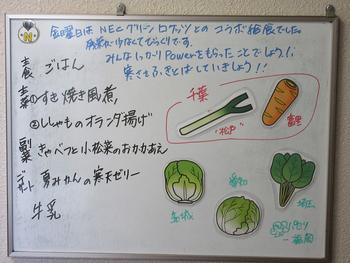 金曜日は NECグリーンロケッツとの コラボ給食でした。
残菜が少なくてびっくりです。
みんなしっかりPowerをもらったことでしょう!
寒さをふきとばしていきましょう!!
主食 ごはん
主菜①すき焼き風煮
②ししゃものオランダ揚げ
副菜 きゃべつと小松菜のおかかあえ
デザート 夏みかんの寒天ゼリー
牛乳
千葉
"松戸"
富里
茨城
愛知
埼玉
パセリ
福岡